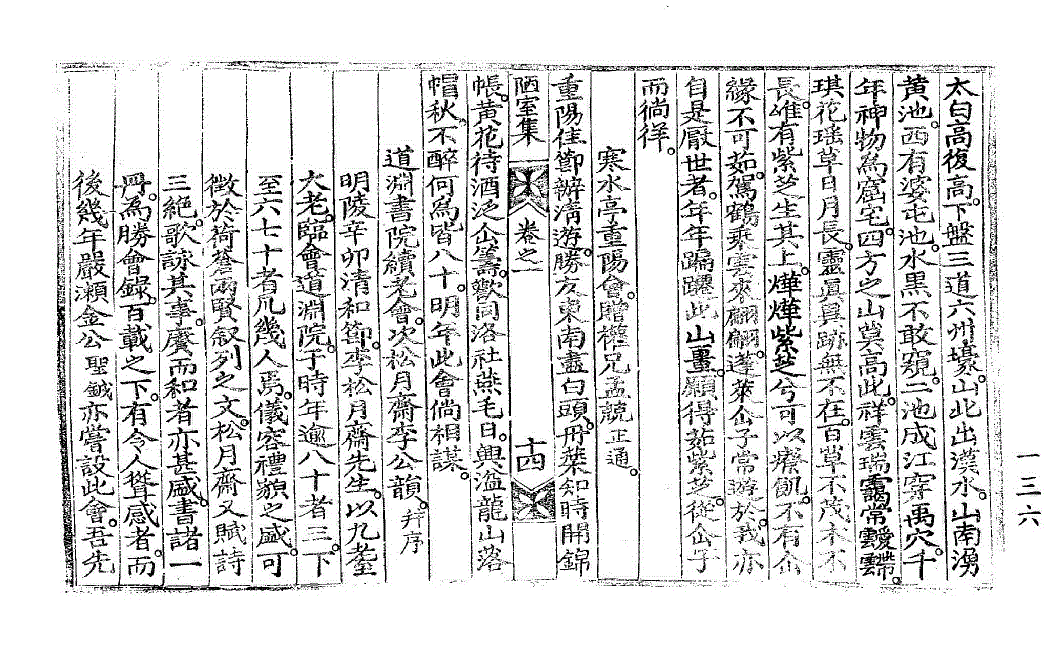 太白高復高下盤三道六州壕山北出漢水山南湧
黃池西有婆屯池水黑不敢窺二池成江穿禹穴千
年神物爲窟宅四方之山莫高此祥雲瑞靄常靉靆
琪花瑤草日月長靈眞異跡無不在百草不茂木不
長唯有紫芝生其上燁燁紫芝兮可以療飢不有仚
緣不可茹駕鶴乘雲來翩翩蓬萊仚子常遊於我亦
自是厭世者年年躋躚此山畺願得茹紫芝從仚子
而徜徉
寒水亭重陽會贈權兄孟兢正通
重陽佳節辦淸遊勝友東南盡白頭丹葉知時開錦
陋室集 卷之一 十四
帳黃花待酒泛仚籌歡同洛社燕毛日興溢龍山落
帽秋不醉何爲皆八十明年此會倘相謀
道淵書院續老會次松月齋李公韻幷序
明陵辛卯淸和節李松月齋先生以九耋
大老臨會道淵院于時年逾八十者三下
至六七十者凡幾人焉儀容禮貌之盛可
徵於荷蒼兩賢叙列之文松月齋又賦詩
三絶歌詠其事賡而和者亦甚盛書諸一
冊爲勝會錄百載之下有令人聳感者而
後幾年嚴瀨金公聖鉞亦嘗設此會吾先
一三六